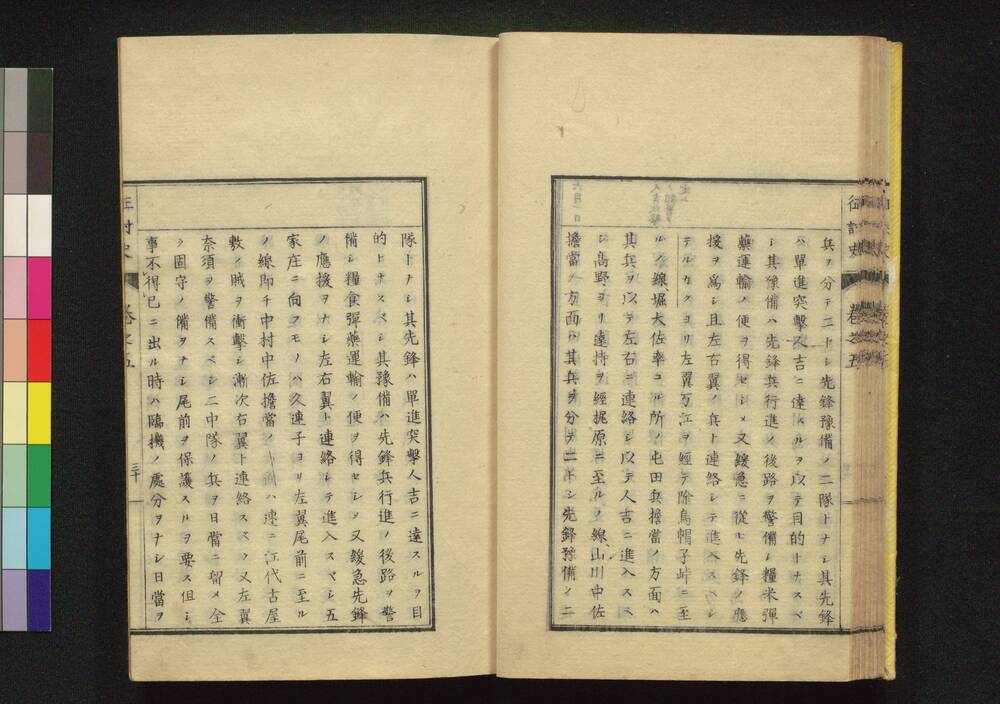 兵ヲ分テ二トシ先鋒豫備ノ二隊トナシ其先鋒
ハ單進突擊人吉ニ達スルヲ以テ目的トナスベ
シ其豫備ハ先鋒兵行進ノ後路ヲ警備シ糧米彈
藥運輸ノ便ヲ得セシメ又緩急ニ從ヒ先鋒ノ應
援ヲ爲シ且左右翼ノ兵ト連絡シテ進入スベシ
テルカクヨリ左翼万江ヲ經テ除烏帽子峠ニ至
ルノ線堀大佐率ユル所ノ屯田兵擔當ノ方面ハ
其兵ヲ以テ左右ニ連絡シ以テ人吉ニ進入スベ
シ高野ヨリ遠持ヲ經梶原ニ至ルノ線山川中佐
擔當ノ方面ハ其兵ヲ分テ二トシ先鋒豫備ノ二
六月一日
征討史 卷之五
隊トナシ其先鋒ハ單進突擊人吉ニ達スルヲ目
的トナスベシ其豫備ハ先鋒兵行進ノ後路ヲ警
備シ糧食彈藥運輸ノ便ヲ得セシメ又緩急先鋒
ノ應援ヲナシ左右翼ト連絡シテ進入スベシ五
家庄ニ向フモノハ久連子ヨリ左翼尾前ニ至ル
ノ線即チ中村中佐擔當ノ ハ速ニ江代古屋
敷ノ賊ヲ衝擊シ漸次右翼ト連絡スベク又左翼
奈須ヲ警備スベシ二中隊ノ兵ヲ日當ニ留メ全
ク固守ノ備ヲナシ尾前ヲ保護スルヲ要ス但シ
事不得已ニ出ル時ハ臨機ノ處分ヲナシ日當ヲ
卷之五
三十